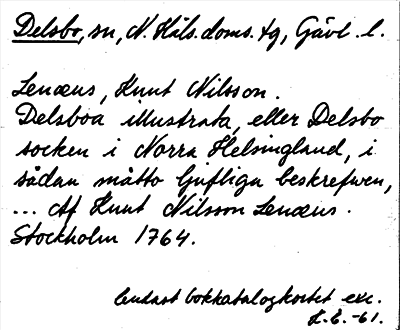 Delsbo, sn, N. Häls. doms. tg, Gävl. l.
Lenæus, Knut Nilsson.
Delsboa illustrata, eller Delsbo
socken i Norra Helsingland, i
sådan måtto ljufliga beskrefwen,
... Af Knut Nilsson Lenæus.
Stockholm 1764.
Endast bokkatalogkortet exc.
L.E. -61.